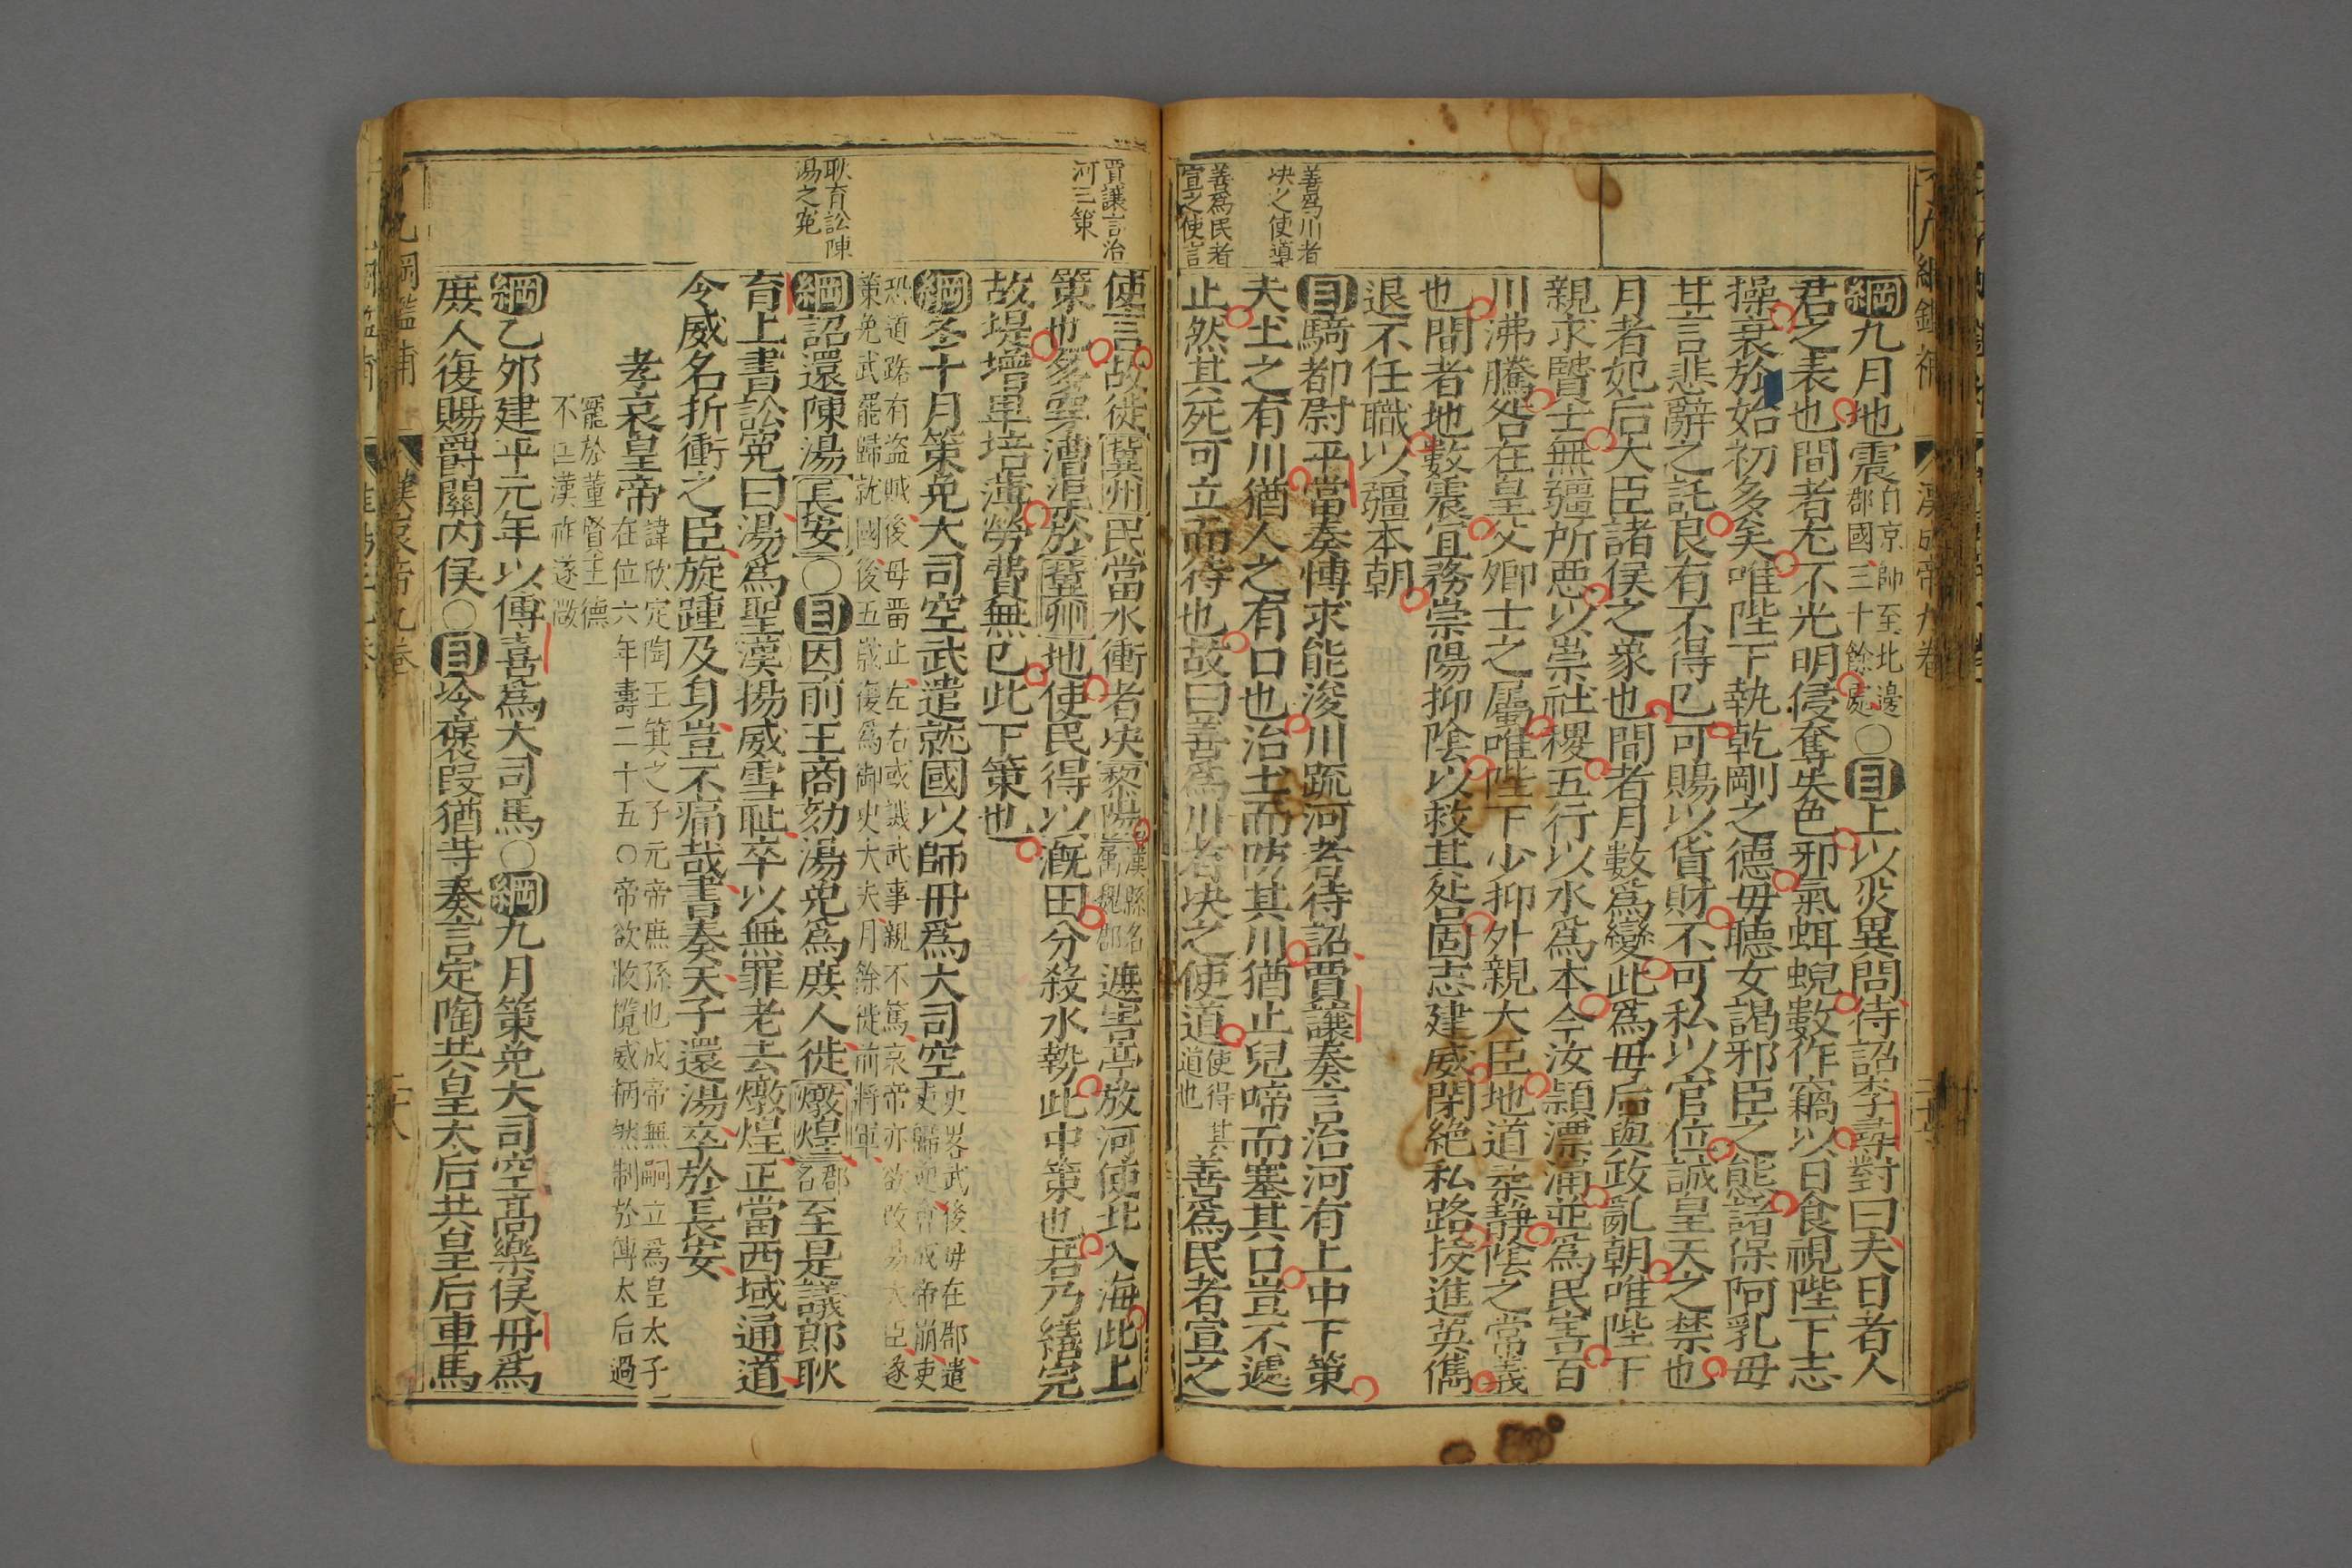 善爲川者
決之使導
善爲民者
宣之使言
綱九月地震自京師至北邊郡國三十餘處○目上以災異問待詔李尋對曰夫日者人
君之表也間者尤不光明侵奪失色邪氣蜺數作竊以日食視陛下志
操衰於始初多矣唯陛下執乾剛之德毋聽女謁邪臣之態諸保阿乳毋
甘言悲辭之託良有不得已可賜以貨財不可私以官位誠皇天之禁也
月者妃后大臣諸侯之象也間者月數爲變此爲毋后與政亂朝唯陛下
親求賢士無彊所惡以崇社稷五行以水爲本今汝潁漂涌並爲民害百
川沸騰咎在皇父卿士之屬唯陛下少抑外親大臣地道柔靜陰之常義
也間者地數震宜務崇陽抑陰以救其咎固志建威閉絕私路拔進英儁
退不任職以彊本朝
目騎都尉平當奏慱求能浚川疏河者待詔賈讓奏言治河有上中下策
夫土之有川猶人之有口也治土而防其川猶止兒啼而塞其口豈不遽
止然其死可立而待也故曰善爲川者决之使道使得其道也善爲民者宣之
賈讓言治
河三策
耿育訟陳
湯之寃
使言故徙冀州民當水衝者决黎陽漢縣名屬魏郡遮害亭放河使北入海此上
策也多穿漕渠於冀州地使民得以漑田分殺水勢此中策也若乃繕完
故堤增卑培薄勞費無已此下策也
綱冬十月策免大司空武遣就國以師丹爲大司空史畧武後毋在郡遣吏歸迎會成帝崩吏
恐道路有盜賊後毋畱止左右或譏武事親不篤哀帝亦欲改易大臣遂
策免武罷歸就國後五歲復爲御史大夫月餘徙前將軍
綱詔還陳湯長安○目因前王商劾湯免爲庶人徙燉煌郡名至是議郎耿
育上書訟寃曰湯爲聖漢揚威雪耻卒以無罪老去燉煌正當西域通道
令威名折衝之臣旋踵及身豈不痛哉書奏天子還湯卒於長安
孝哀皇帝諱欣定陶王箕之子元帝庶孫也成帝無嗣立爲皇太子
在位六年壽二十五○帝欲收攬威柄然制於傅太后過
寵於董賢王德
不匡漢祚遂微
綱乙卯建平元年以傅喜爲大司馬○綱九月策免大司空高樂侯丹爲
庶人復賜爵關内侯○目冷褒叚猶等奏言定陶共皇太后共皇后車馬